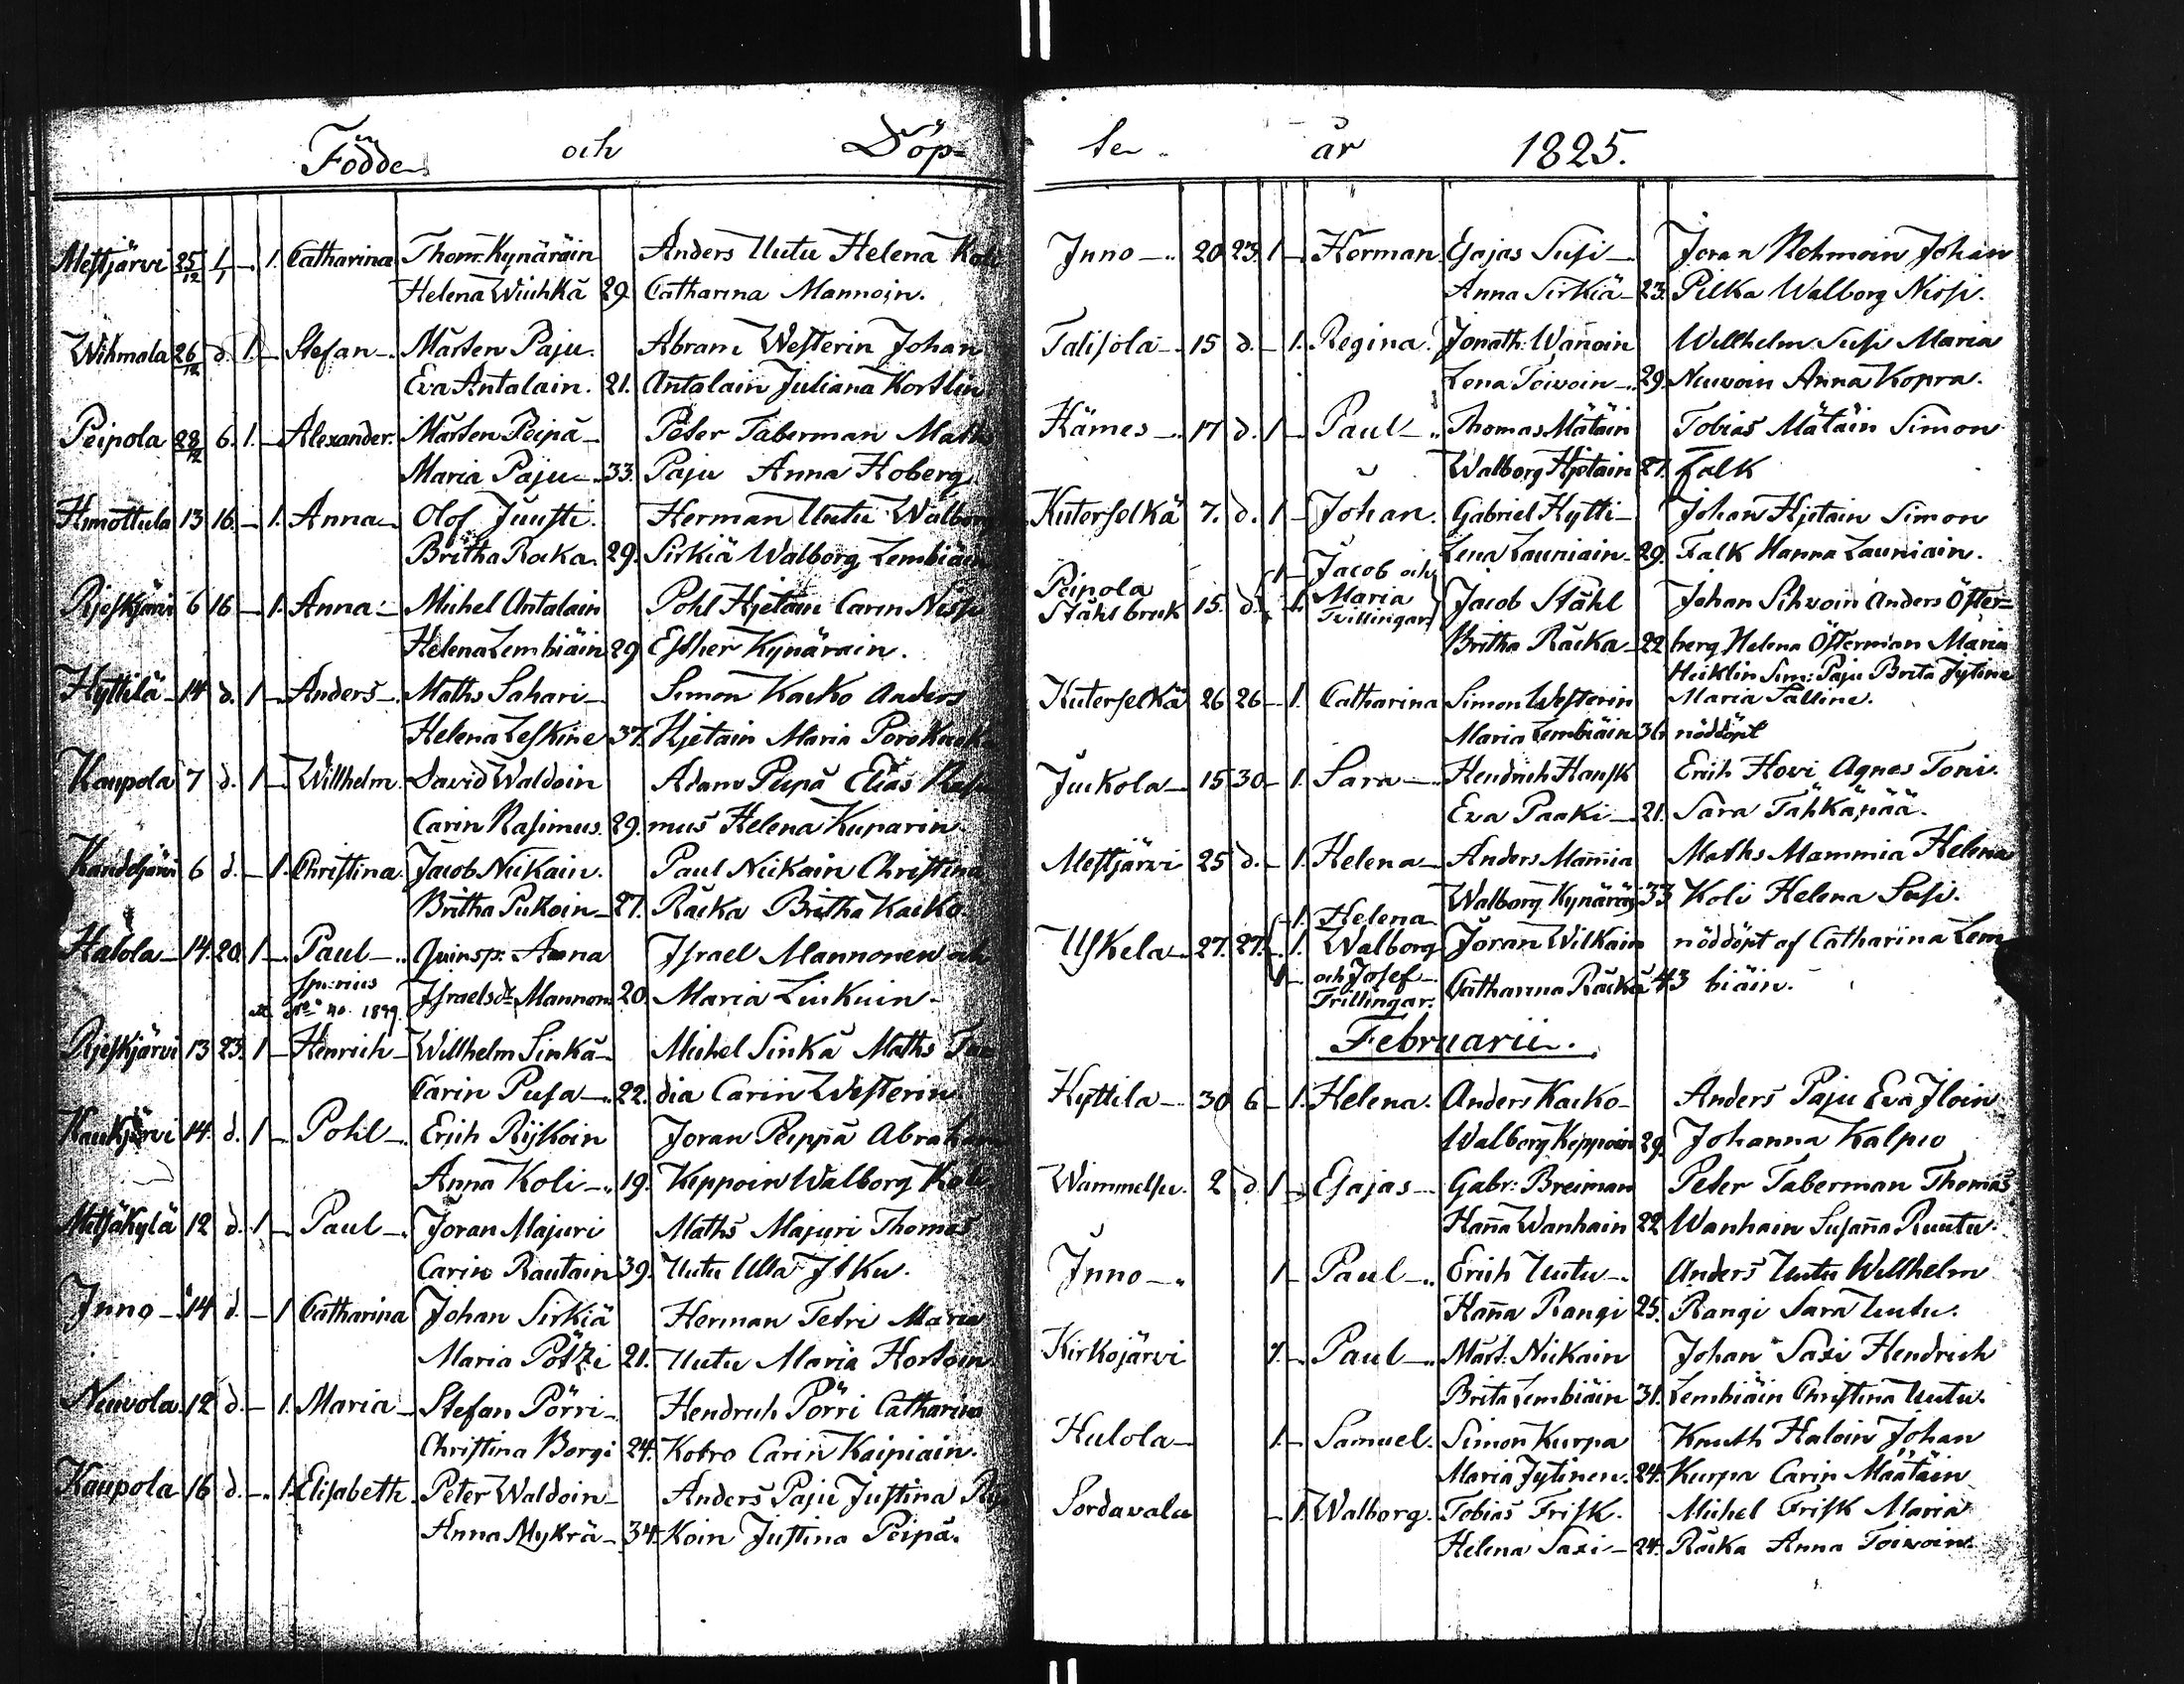 Födde och Döp-
Metsjärvi 25/12 1/1 - 1. Catharina Thom: Kynäräin Anders Uutu Helena Koli
Helena Wiuhkä 29. Catharina Mannoin.
Wihmola 26/12 d. 1. - Stefan - Mårten Paju. Abram Westerin Johan
Eva Antalain. 21. Antalain Juliana Kortlin
Peipola 28/12 6. 1. - Alexander. Mårten Peipä - Peter Taberman Maths
Maria Paju - 33. Paju Anna Hoberg
Himottula 13 16. - 1. Anna - Olof Juusti. Herman Uutu Walborg
Britha Räikä. 29. Sirkiä Walborg Lembiäin
Rjeskjärvi 6 16 - 1. Anna - Michel Antalain Pohl Hjetain Carin Nisp
Helena Lembiäin 29 Esther Kynäräin.
Hyttilä - 14 d. 1 - Anders - Maths Sahari - Simon Kaiko Anders
Helena Leskine 37. Hjetain Maria
Kaupola 7 d. 1 - Willhelm. David Waldoin Adam Peipä Elias Rasi
Carin Rasimus. 29. mus Helena Kuparin.
Kandeljärvi 6 d. - 1. Christina. Jacob Nickain. Paul Nickain Christina
Britha Pukoin - 27. Räikä Britha Kaiko.
Halola - 14. 20. 1 - Paul - Qvinsp: Anna Israel Mannonen och
spurius Israelsdr Mannon: 20. Maria Liukuin.
1899.
Rjeskjärvi 13 23. 1 - Henrich - Willhelm Sinkä - Michel Sinkä Maths
Carin Pusa - 22. dia Carin Westerin
Kaukjärvi 14. d. 1 - Pohl - Erich Rijkoin Joran Peippä Abraham
Anna Koli - 19. Keppoin Walborg Koli.
Metsäkylä 12 d. 1 - Paul - Joran Majuri Maths Majuri Thomas
Carin Rautain 39. Uutu Ulla Itku.
Inno - 14 d. - 1 Catharina Johan Sirkiä Herman Tetri Maria
Maria Pötzi 21. Uutu Maria Hortoin
Neuvola 12 d. - 1. Maria - Stefan Pörri - Hendrich Pörri Catharina
Christina Borgi 24. Kotro Carin Kaipiain.
Kaupola 16 d. - 1. Elisabeth. Peter Waldoin - Anders Paju Justina Rij
Anna Mykrä - 34. Koin Justina Peipä.
te år 1825.
Inno - 20 23. 1 - Herman. Esajas Susi - Joran Rehmoin Johan
Anna Sirkiä - 23. Pilka Walborg Nisp.
Talisola - 15 d. - 1. Regina. Jonath: Wanoin Willhelm Susi Maria
Lena Toivoin - 29. Neuvoin Anna Kopra.
Hämes - 17 d. 1 - Paul - Thomas Mätäin Tobias Mätäin Simon
Walborg Hjetain 27. Falk
Kuterselkä 7. d. 1 - Johan. Gabriel Hytti - Johan Hjetain Simon
Lena Lauriain - 29. Falk Hanna Lauriain.
1 - Jacob och
Peipola Maria
Ståhlbruk 15. d. - 1. Tvillingar Jacob Ståhl Johan Sihvoin Anders Öster=
Britha Räikä - 22 berg Helena Österman Maria
Heiklin Sim: Paju Brita Jytine
Kuterselkä 26 26 - 1. Catharina Simon Westerin Maria Palline.
Maria Lembiäin 36. nöddöpt
Juckola - 15 30 - 1. Sara - Hendrich Hausk Erich Hovi Agnes Toni.
Eva Paaki - 21. Sara Tähkäpää.
Metsjärvi 25 d. - 1. Helena - Anders Mammia Maths Mammia Helena
Walborg Kynäräi 33 Koli Helena Susi.
- 1. Helena
Uskela - 27. 27. - 1. Walborg Joran Wilkain nöddöpt af Catharina Lem
1 - och Josef - Catharina Räikä 43 biäin.
Trillingar.
Februarii.
Hyttila - 30 6 - 1. Helena. Anders Kaiko - Anders Paju Eva Iloin
Walborg Keppoin 29. Johanna Kalpio
Wammelsu. 2 d 1 - Esajas - Gabr: Breiman Peter Taberman Thomas
Hanna Wanhain 22 Wanhain Susanna Ruutu.
Inno - 1 - Paul - Erich Uutu - Anders Uutu Willhelm
Hanna Rangi 25. Rangi Sara Uutu.
Kirkojärvi 1. - Paul - Mårt: Nickain Johan Saxi Hendrich
Brita Lembiäin 31. Lembiäin Christina Uutu.
Hulola - 1. - Samuel. Simon Kurpa Knuth Haloin Johan
Maria Jytinen. 24. Kurpa Carin Määtäin
Sordavala - 1. Walborg. Tobias Frisk. Michel Frisk Maria
Helena Saxi - 24. Räikä Anna Toivoin.